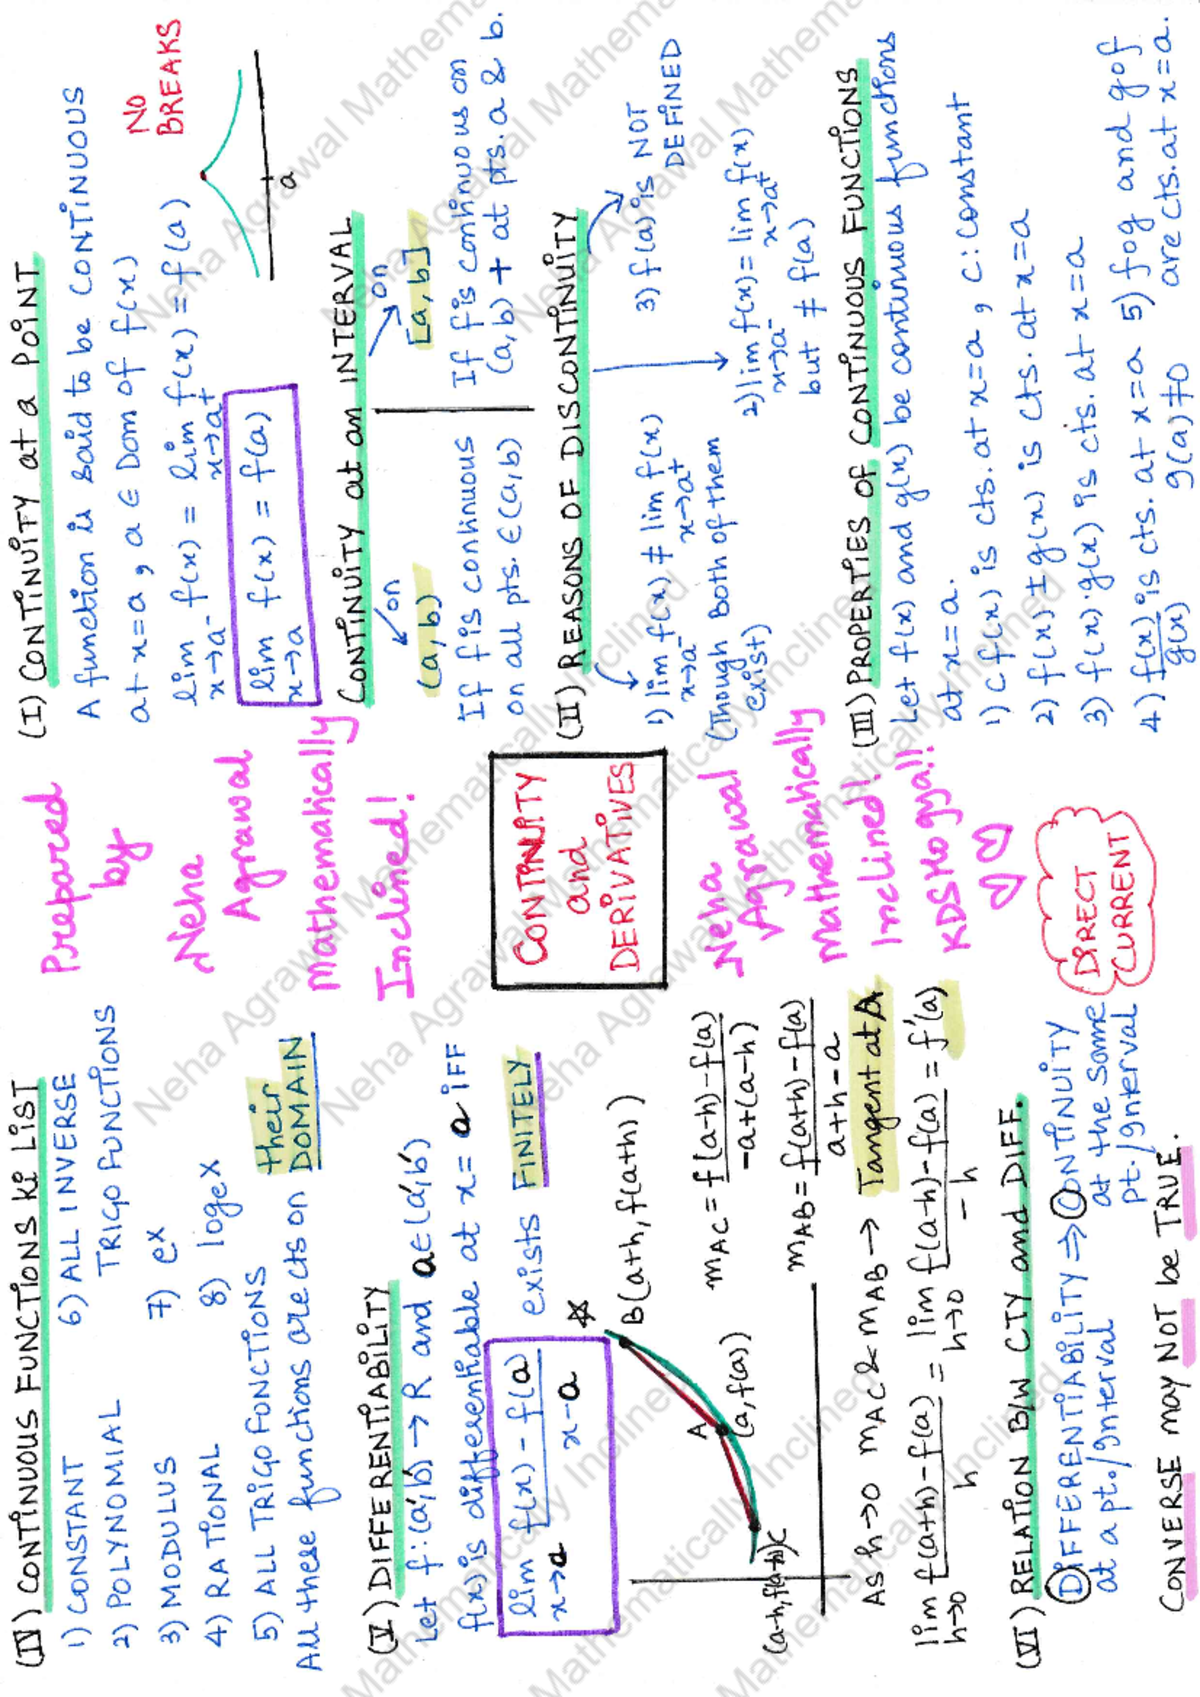 (I) CONTINUITY at a POINT
A function is said to be CONTINUOUS
at x=a, a ∈ Dom of f(x)
lim f(x) = lim f(x) = f(a)
x→a⁻ x→a⁺
lim f(x) = f(a)
x→a
NO
BREAKS
a
CONTINUITY at an INTERVAL
on
(a,b)
If f is continuous
on all pts. ∈ (a,b)
on
[a,b]
If f is continuous on
(a,b) + at pts. a & b.
(II) REASONS OF DISCONTINUITY
1) lim f(x) ≠ lim f(x)
x→a⁻ x→a⁺
(Though Both of them
exist)
2) lim f(x) = lim f(x)
x→a⁻ x→a⁺
but ≠ f(a)
3) f(a) is NOT
DEFINED
(III) PROPERTIES OF CONTINUOUS FUNCTIONS
Let f(x) and g(x) be continuous functions
at x=a.
1) cf(x) is cts. at x=a, c: constant
2) f(x) ± g(x) is cts. at x=a
3) f(x)·g(x) is cts. at x=a
4) f(x) is cts. at x=a
g(x) g(a)≠0
5) fog and gof
are cts. at x=a.
Prepared
by
Neha
Agrawal
Mathematically
Inclined!
CONTINUITY
and
DERIVATIVES
Neha
Agrawal
Mathematically
Inclined!
KDSMOgya!!
DIRECT
CURRENT
(IV) CONTINUOUS FUNCTIONS KI LIST
1) CONSTANT
2) POLYNOMIAL
3) MODULUS
4) RATIONAL
5) ALL TRIGO FUNCTIONS
6) ALL INVERSE
TRIGO FUNCTIONS
7) eˣ
8) logeX
All these functions are cts on their
DOMAIN
(V) DIFFERENTIABILITY
Let f:(a',b') → R and a∈(a',b')
f(x) is differentiable at x= a iFF
lim f(x) - f(a)
x→a x-a
exists FINITELY
B(a+h, f(a+h))
A
(a, f(a))
(a-h, f(a-h)) C
mAC = f(a-h)-f(a)
-a+(a-h)
mAB = f(a+h)-f(a)
a+h-a
As h→0 mAC & mAB → Tangent at A
lim f(a+h)-f(a) = lim f(a-h)-f(a) = f'(a)
h→0 h h→0 -h
(VI) RELATION B/W CTY and DIFF.
DIFFERENTIABILITY ⇒ CONTINUITY
at a pt./Interval at the same
pt./Interval
CONVERSE may NOT be TRUE.
Neha Agrawal Mathematically Inclined